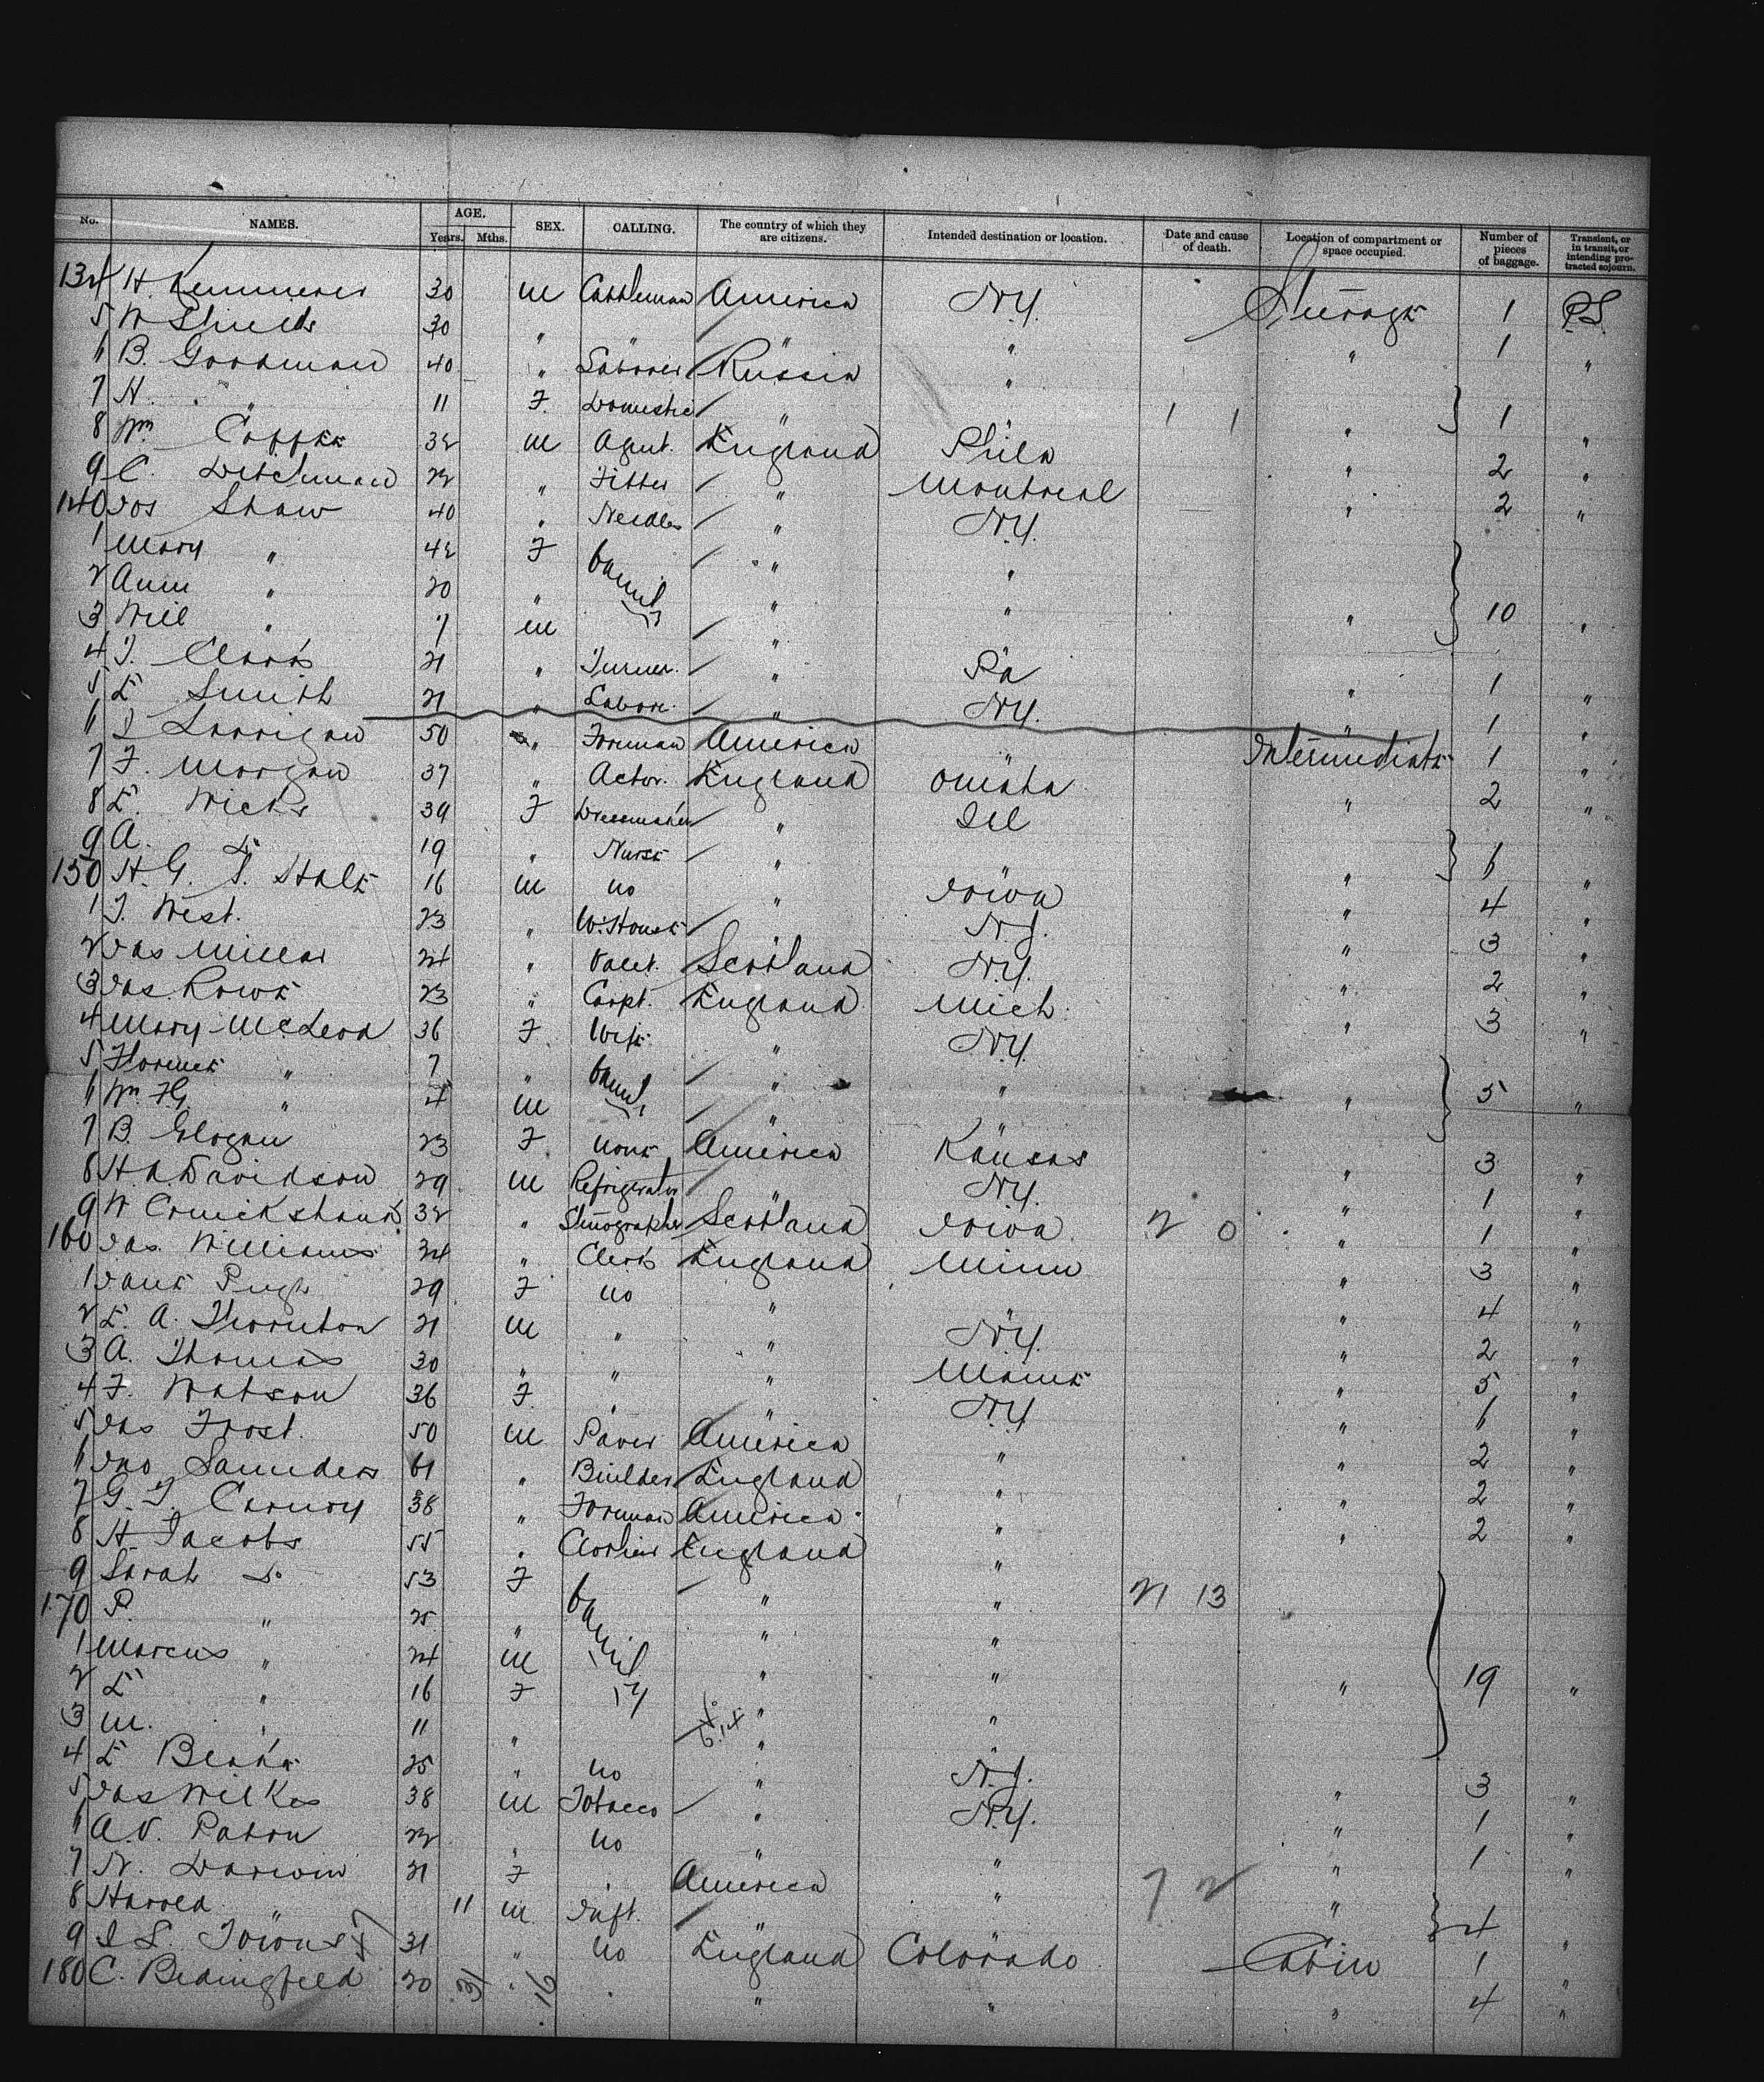 No. NAMES. AGE. Years. Mths. SEX. CALLING. The country of which they are citizens. Intended destination or location. Date and cause of death. Location of compartment or space occupied. Number of pieces of baggage. Transient, or in transit, or intending protracted sojourn.
134 H. 30 M Cattleman America N.Y. Steerage 1 P.S.
5 W Shields 30 " " " " " 1 "
6 B. Goodman 40 " Laborer Russia " "
7 H. " 11 F. Domestic " " 1 1 " 1 "
8 Wm 32 M Agent. England Phila " 2 "
9 C. 22 " Fitter " Montreal " 2 "
140 Jos Shaw 40 " " N.Y.
1 Mary " 42 F Family " "
2 Ann " 20 " " " " 10 "
3 Will " 7 M "
4 J. Clark 21 " Turner. " Pa " 1 "
5 E Smith 21 " Labor. " N.Y. " 1 "
6 J Larrigan 50 " Foreman America " Intermediate 1 "
7 F. Morgan 37 " Actor. England Omaha " 2 "
8 E. Wicks 39 F Dressmaker " Ill
9 A. 19 " Nurse " " " 6 "
150 H. G. 16 M no " Iowa " 4 "
1 J. West. 23 " W. House " N.J. " 3 "
2 Jas Millar 24 " Valet. Scotland N.Y. " 2 "
3 Jas. Rowe 23 " Carpt. England Mich. " 3 "
4 Mary McLeod 36 F. Wife " N.Y.
5 Florence " 7 " Family " " " 5 "
6 Wm. " 4 M "
7 B. Glogau 23 F. none America Kansas " 3 "
8 H. A. Davidson 29 M Refrigerator " N.Y. " 1 "
9 W Cruickshank 32 " Stenographer Scotland Iowa. 2 0 " 1 "
160 Jas. Williams 34 " Clerk England Minn " 3 "
1 Jane Pugh 29 F no " " " 4 "
2 E. A. Thornton 21 M " " N.Y. " 2 "
3 A. Thomas 30 " " " Maine " 5 "
4 F. Watson 36 F. " " N.Y. " 6 "
5 Jas Frost. 50 M Paver America " " 2 "
6 Jno Saunders 61 " Builder England " " 2 "
7 G. J. 38 " Foreman America " " 2 "
8 H. Jacobs 55 " Clothier England "
9 Sarah Do 53 F Family " " 21 13
170 P. " 25 " " "
1 Marcus " 24 M " " " 19 "
2 E " 16 F " "
3 M. " 11 " " "
4 E 25 " no " N.J. " 3 "
5 Jas Wilkes 38 M Tobacco " N.Y. " 1 "
6 A. V. Paton 22 " no " " " 1 "
7 N. Darwin 21 F " America " 7 2 "
8 Harold " 11 M Inft. " 4 "
9 31 " no England Colorado Cabin 1 "
180 C. Bedingfeld 20 " " " " " 4 "